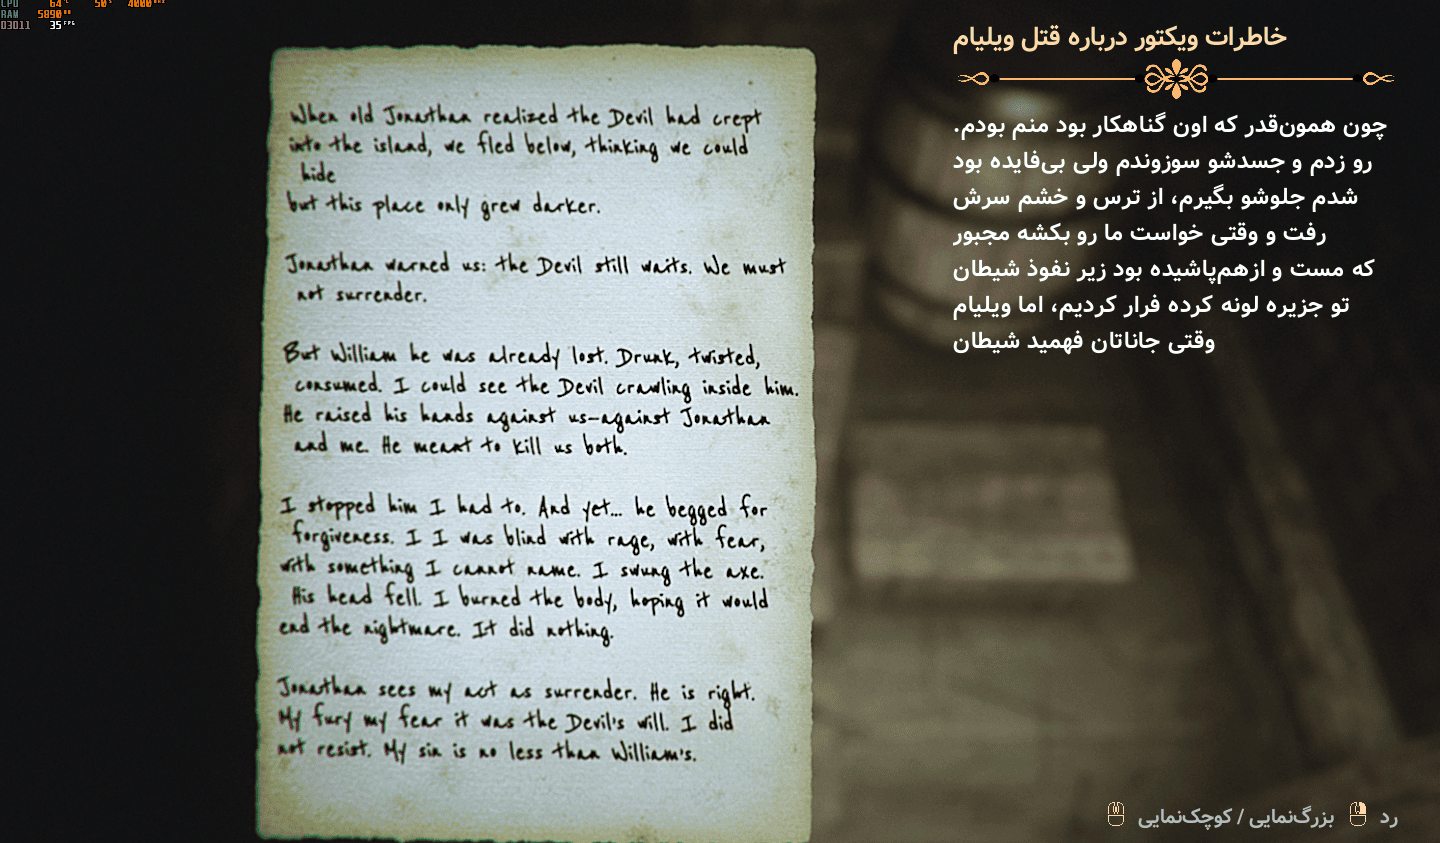 CPU 64°C 50% 4000MHz
RAM 5890MB
D3D11 35FPS
When old Jonathan realized the Devil had crept
into the island, we fled below, thinking we could
hide
but this place only grew darker.
Jonathan warned us: the Devil still waits. We must
not surrender.
But William he was already lost. Drunk, twisted,
consumed. I could see the Devil crawling inside him.
He raised his hands against us—against Jonathan
and me. He meant to kill us both.
I stopped him I had to. And yet... he begged for
forgiveness. I I was blind with rage, with fear,
with something I cannot name. I swung the axe.
His head fell. I burned the body, hoping it would
end the nightmare. It did nothing.
Jonathan sees my act as surrender. He is right.
My fury my fear it was the Devil's will. I did
not resist. My sin is no less than William's.
خاطرات ویکتور درباره قتل ویلیام
چون همون‌قدر که اون گناهکار بود منم بودم.
رو زدم و جسدشو سوزوندم ولی بی‌فایده بود
شدم جلوشو بگیرم، از ترس و خشم سرش
رفت و وقتی خواست ما رو بکشه مجبور
که مست و ازهم‌پاشیده بود زیر نفوذ شیطان
تو جزیره لونه کرده فرار کردیم، اما ویلیام
وقتی جاناتان فهمید شیطان
رد بزرگ‌نمایی / کوچک‌نمایی